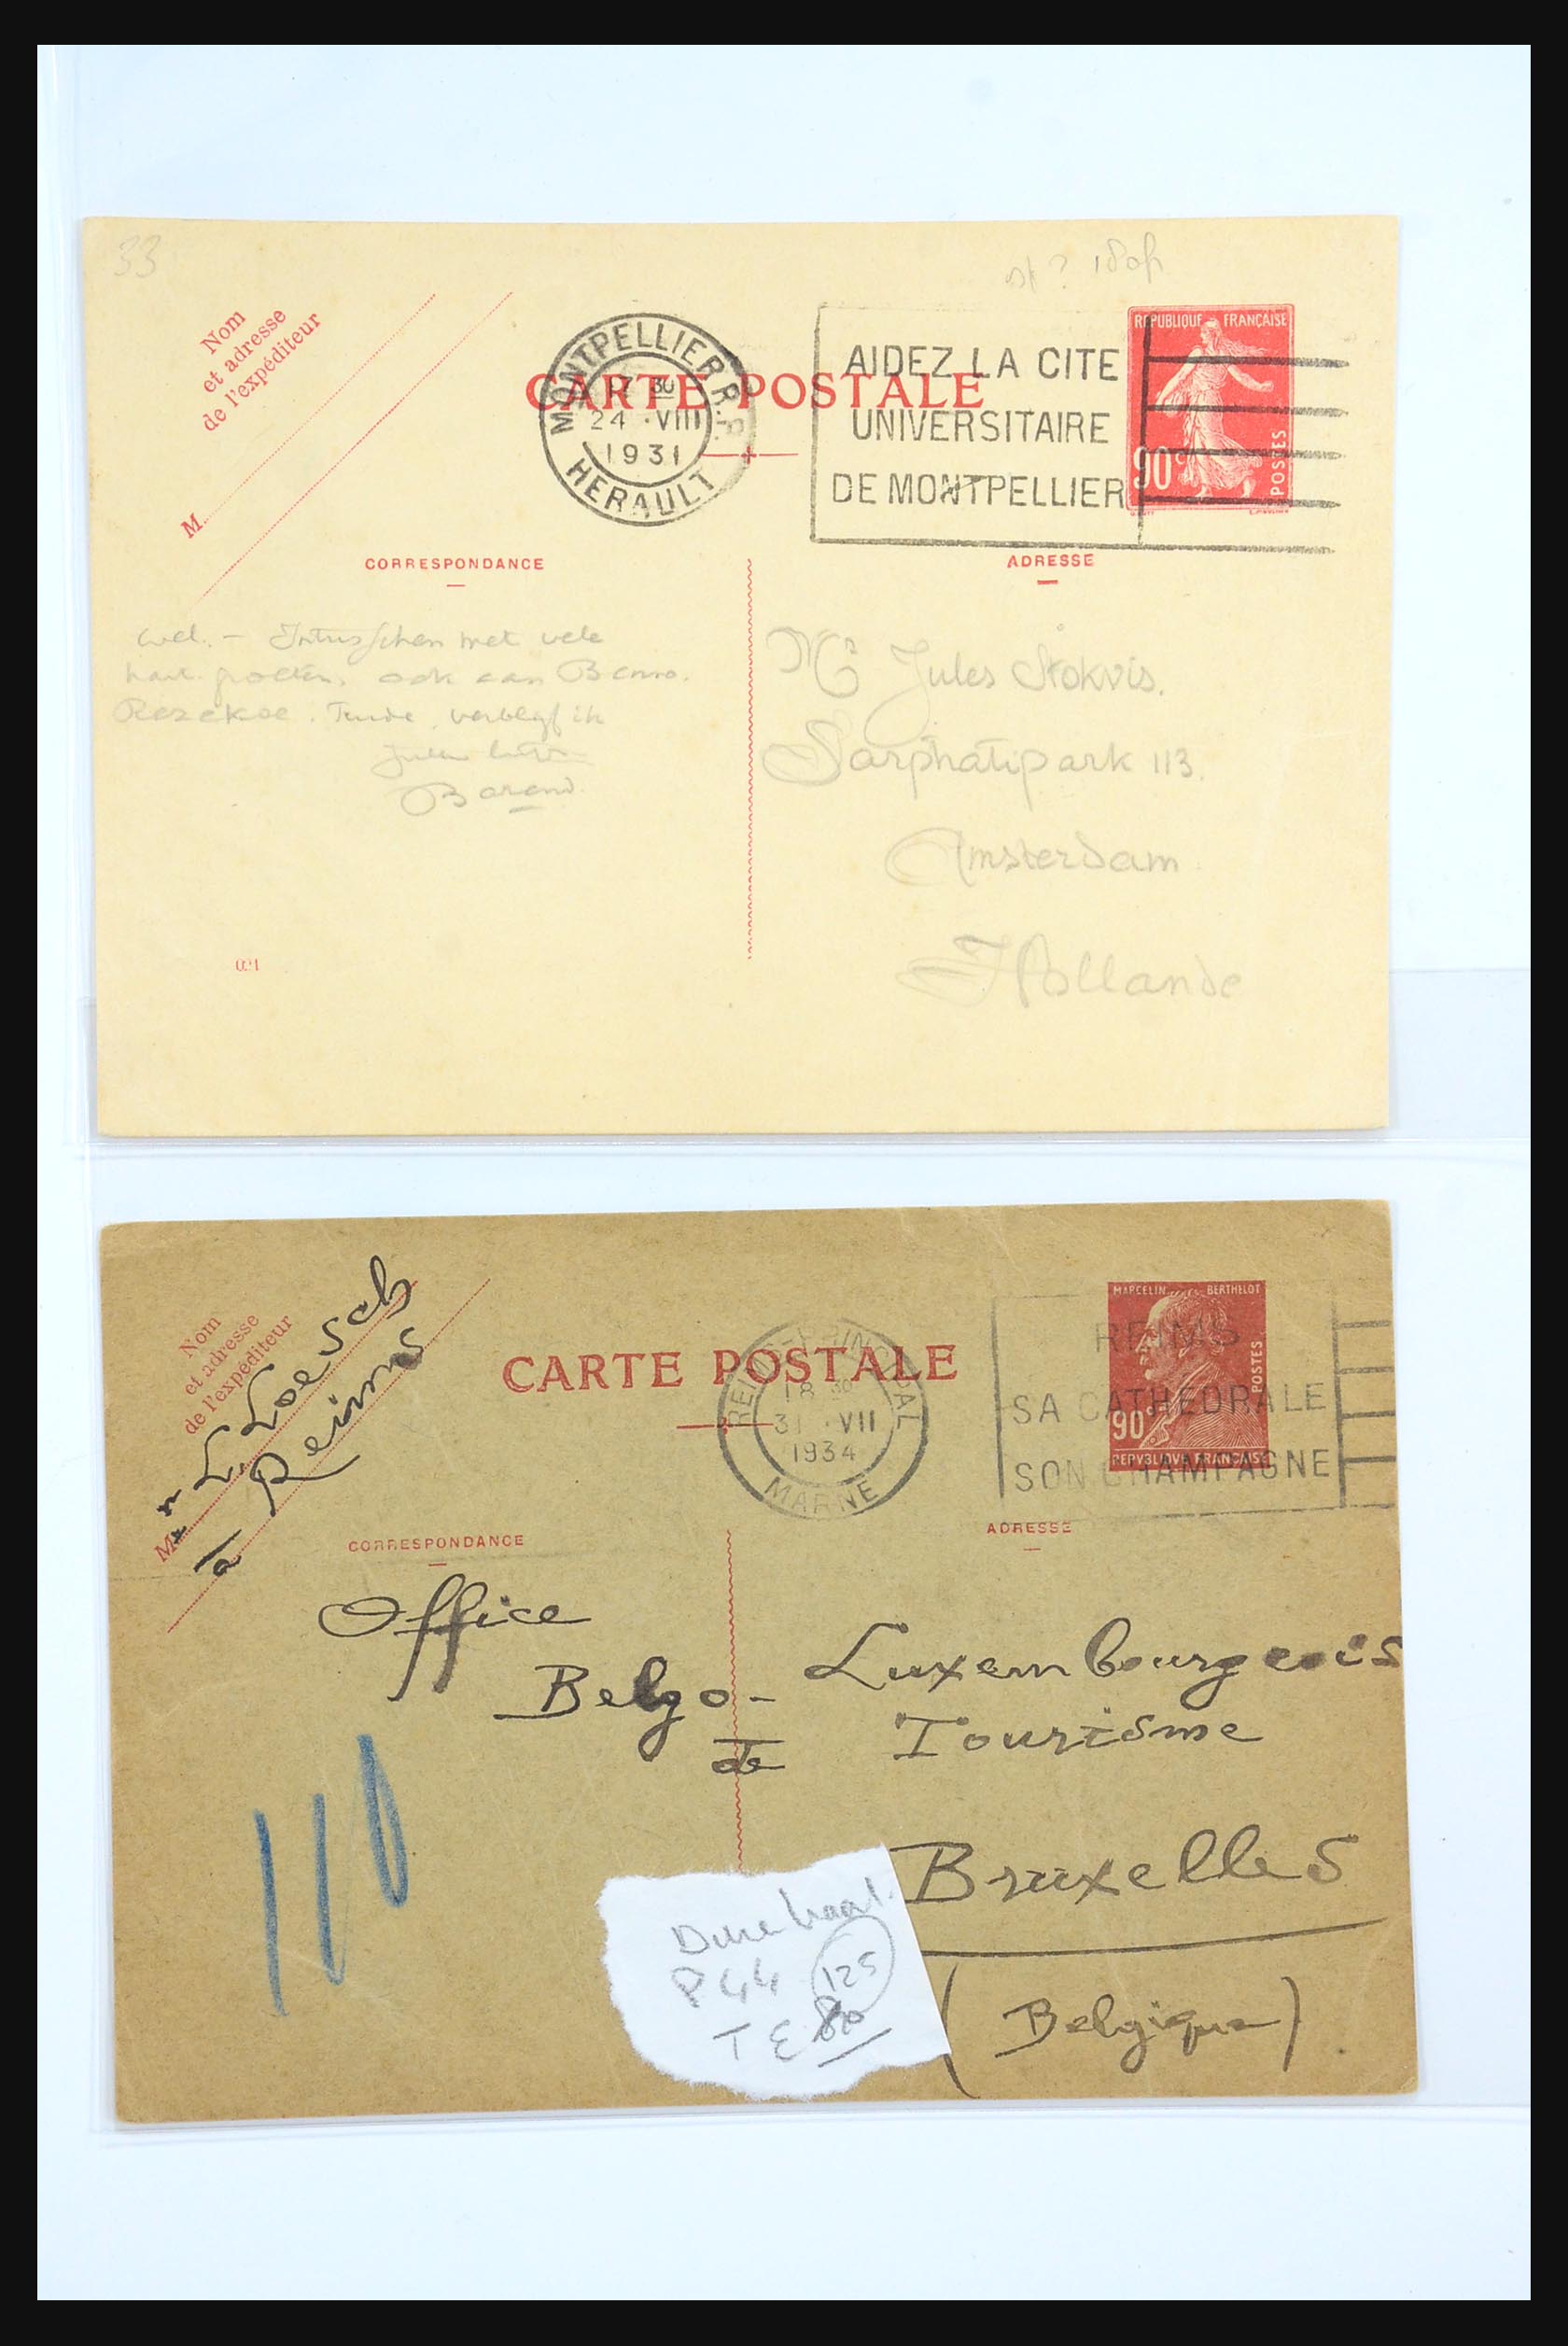 33
180
Nom
et adresse
de l'expéditeur
M
CARTE POSTALE
MONTPELLIER R.P.
17 30
24 ·VIII
1931
HERAULT
AIDEZ LA CITE
UNIVERSITAIRE
DE MONTPELLIER
REPUBLIQUE FRANÇAISE
90c
POSTES
CORRESPONDANCE
wel. — Intusschen met vele
hart. groeten, ook aan Benno.
verblijf ik
Barend.
021
ADRESSE
Mr Jules Stokvis.
Sarphatipark 113.
Amsterdam
Hollande
Nom
et adresse
de l'expéditeur
Mr L. Loesch
à Reims
CARTE POSTALE
REIMS-PRINCIPAL
18 30
31 ·VII
1934
MARNE
REIMS
SA CATHEDRALE
SON CHAMPAGNE
MARCELIN BERTHELOT
POSTES
90c
REPVBLIQVE FRANÇAISE
CORRESPONDANCE
ADRESSE
Office
Belgo-Luxembourgeois
de Tourisme
Bruxelles
(Belgique).
110
P 44 125
T E 80